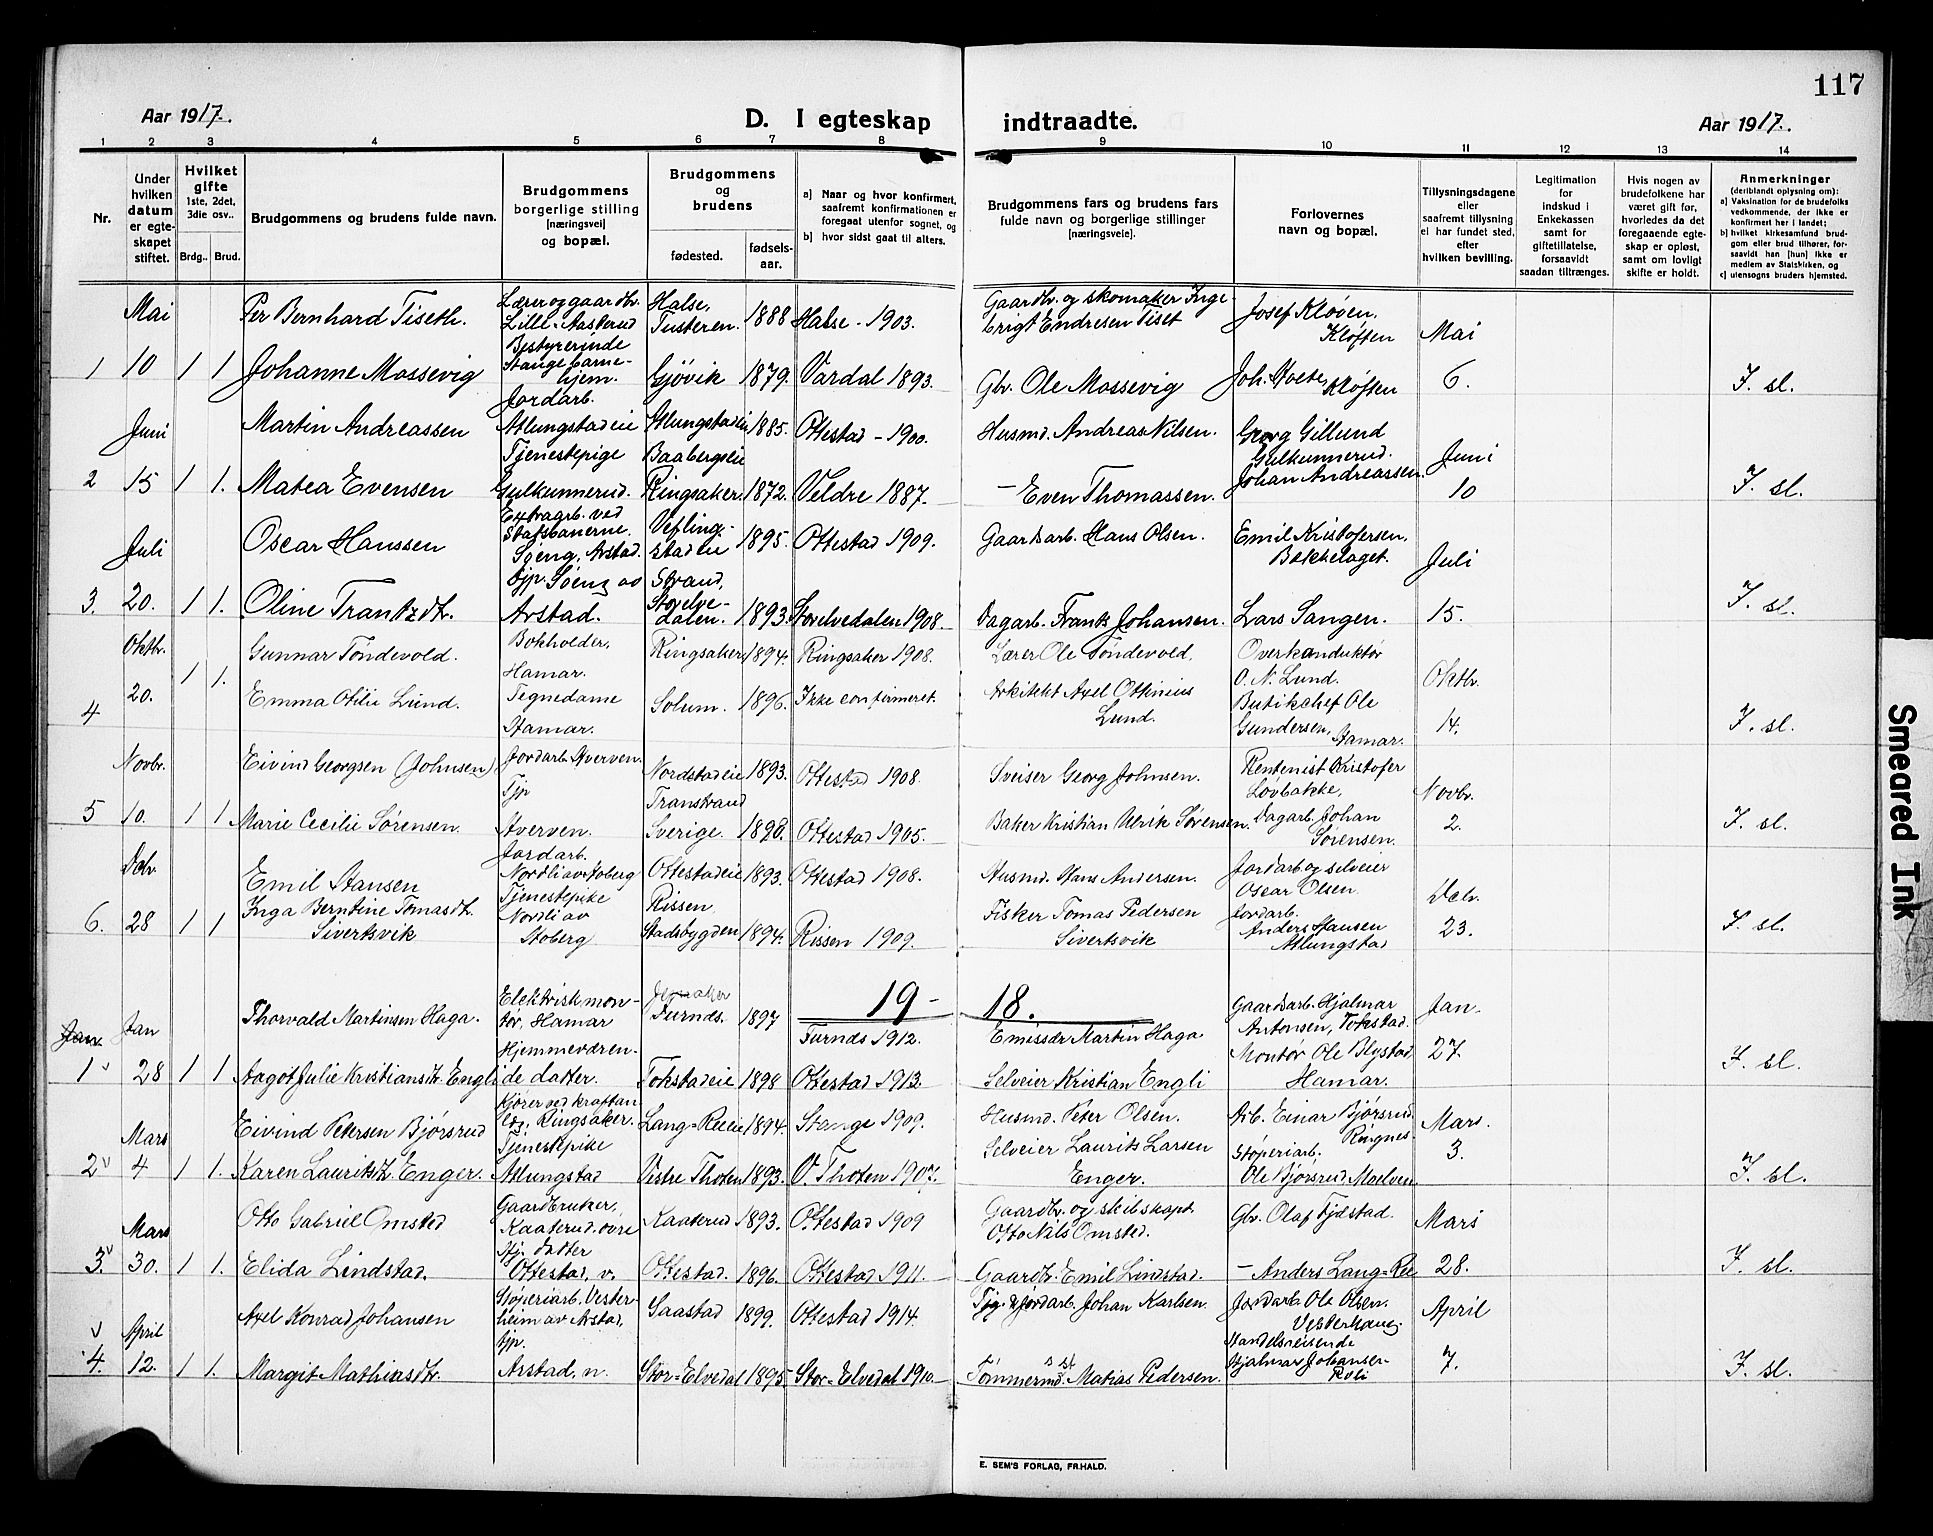 117
Aar 1917.
D. I egteskap indtraadte.
Aar 1917.
1 2 3 4 5 6 7 8 9 10 11 12 13 14
Nr.
Under hvilken datum er egteskapet stiftet.
Hvilket gifte 1ste, 2det, 3die osv..
Brdg.. Brud.
Brudgommens og brudens fulde navn.
Brudgommens borgerlige stilling [næringsvei] og bopæl.
Brudgommens og brudens
fødested.
fødselsaar.
a) Naar og hvor konfirmert, saafremt konfirmationen er foregaat utenfor sognet, og
b) hvor sidst gaat til alters.
Brudgommens fars og brudens fars fulde navn og borgerlige stillinger [næringsveie].
Forlovernes navn og bopæl.
Tillysningsdagene eller saafremt tillysning ei har fundet sted, efter hvilken bevilling.
Legitimation for indskud i Enkekassen samt for giftetillatelse, forsaavidt saadan tiltrænges.
Hvis nogen av brudefolkene har været gift før, hvorledes da det foregaaende egteskap er opløst, samt om lovligt skifte er holdt.
Anmerkninger (deriblandt oplysning om):
a) Vaksination for de brudefolks vedkommende, der ikke er konfirmert her i landet;
b) hvilket kirkesamfund brudgom eller brud tilhører, forsaavidt han [hun] ikke er medlem av Statskirken, og
c) utensogns bruders hjemsted.
Mai Per Bernhard Tiseth. Lærer og gaardbr. Lill-Aasterud Halse, Tusteren. 1888 Halse - 1903. Gaardbr. og skomaker Ingebrigt Endresen Tiset Josef Kløven, Kløften Mai
1 10 1 1 Johanne Mossevig Bestyrerinde Stange barnehjem. Gjövik 1879. Vardal 1893. Gbr. Ole Mossevig Joh. Kløften 6. I. sl.
Juni Martin Andreassen Jordarb. Atlungstadeie Atlungstadeie 1885. Ottestad - 1900. Husmd. Andreas Nilsen. Georg Gillund Gulkunnerud. Juni
2 15 1 1. Matea Evensen Tjenestepige Gulkunnerud. Baabergseie Ringsaker. 1872. Veldre 1887. - Even Thomassen. Johan Andreassen. 10 I. sl.
Juli Oscar Hanssen Extragarb. ved Statsbanerne. Soeng, Arstad. Veflingstadeie 1895. Ottestad 1909. Gaardsarb. Hans Olsen. Emil Kristofersen, Bekkelaget. Juli
3. 20. 1 1. Oline Frantzdtr. Tjp. Soeng av Arstad. Strand, Storelvedalen. 1893. Storelvedalen 1908. Dagarb. Frants Johansen. Lars Sangen. 15. I. sl.
Oktbr. Gunnar Töndevold. Bokholder, Hamar. Ringsaker 1894. Ringsaker 1908. Lærer Ole Töndevold. Overkonduktör O. N. Lund. Oktbr.
4 20. 1 1. Emma Otilie Lund. Tegnedame Hamar. Solum. 1896. Ikke confirmeret. Arkitekt Axel Ottinius Lund. Butikchef Ole Gundersen, Hamar. 14. I. sl.
Novbr. Eivind Georgsen (Johnsen) Jordarb. Hverven. Nordstadeie 1893. Ottestad 1908. Sveiser Georg Johnsen. Rentenist Kristofer Lövbakke, Novbr.
5 10. 1 1 Marie Cecilie Sørensen. Tjp Hverven. Transtrand Sverige. 1890. Ottestad 1905. Baker Kristian Ulrik Sørensen. Dagarb. Johan Sørensen. 2. I. sl.
Debr. Emil Hansen Jordarb. Nordli av Hoberg Ottestadeie 1893. Ottestad 1908. Husmd. Hans Andersen. Jordarb. og selveier Oscar Olsen. Debr.
6. 28 1 1 Inga Berntine Tomasdtr. Sivertsvik Tjenestepike Nordli av Hoberg Rissen Stadsbygden 1894. Rissen 1909. Fisker Tomas Pedersen Sivertsvik Jordarb. Anders Hansen Atlungstad 23. I. sl.
19 - 18.
Jan Jan Thorvald Martinsen Haga. Elektrisk montör, Hamar Furnds. 1897 Furnds 1912. Emissær Martin Haga Gaardsarb. Hjalmar Antonsen, Tokstad. Jan.
1 28 1 1 Aagot Julie Kristiansdtr. Engli Hjemmeværende datter. Tokstadeie 1898 Ottestad 1913. Selveier Kristian Engli Montör Ole Blystad Hamar. 27. I. sl.
Mars Eivind Petersen Bjórsrud Kjører ved kraftanlæg, Ringsaker. Lang-Reeie 1894. Stange 1909. Husmd. Peter Olsen. Arb. Einar Björsrud Ringnes. Mars.
2 4 1 1. Karen Lauritsdtr. Enger. Tjenestepike Atlungstad Vestre Thoten 1893. V. Thoten 1907. Selveier Laurits Larsen Enger. Støperiarb. Ole Björsrud, Moelven 3. I. sl.
Mars Otto Gabriel Omsted Gaardbruker, Kaaterud øvre Kaaterud 1893. Ottestad 1909 Gaardbr. og skibskapt. Otto Nils Omsted. Gbr. Olaf Tjæstad. Mars
3. 30. 1 1. Elida Lindstad. Hj. datter Ottestad, v. Ottestad. 1896. Ottestad 1911. Gaardbr. Emil Lindstad. - Anders Lang-Ree 28. I. sl.
April Axel Konrad Johansen Støperiarb. Vesterheim av Arstad, Saastad 1899. Ottestad 1914. Jordarb. Johan Karlsen. Jordarb. Ole Olsen. Vesterhaug April
4. 12. 1 1. Margit Mathiasdtr. Tjp. Arstad, n. Stor-Elvedal 1895. Stor-Elvedal 1910. Tømmermd. Matias Pedersen. Handelsreisende Hjalmar Johansen Roli 7. I. sl.
E. SEM'S FORLAG, FR.HALD.
Smeared Ink